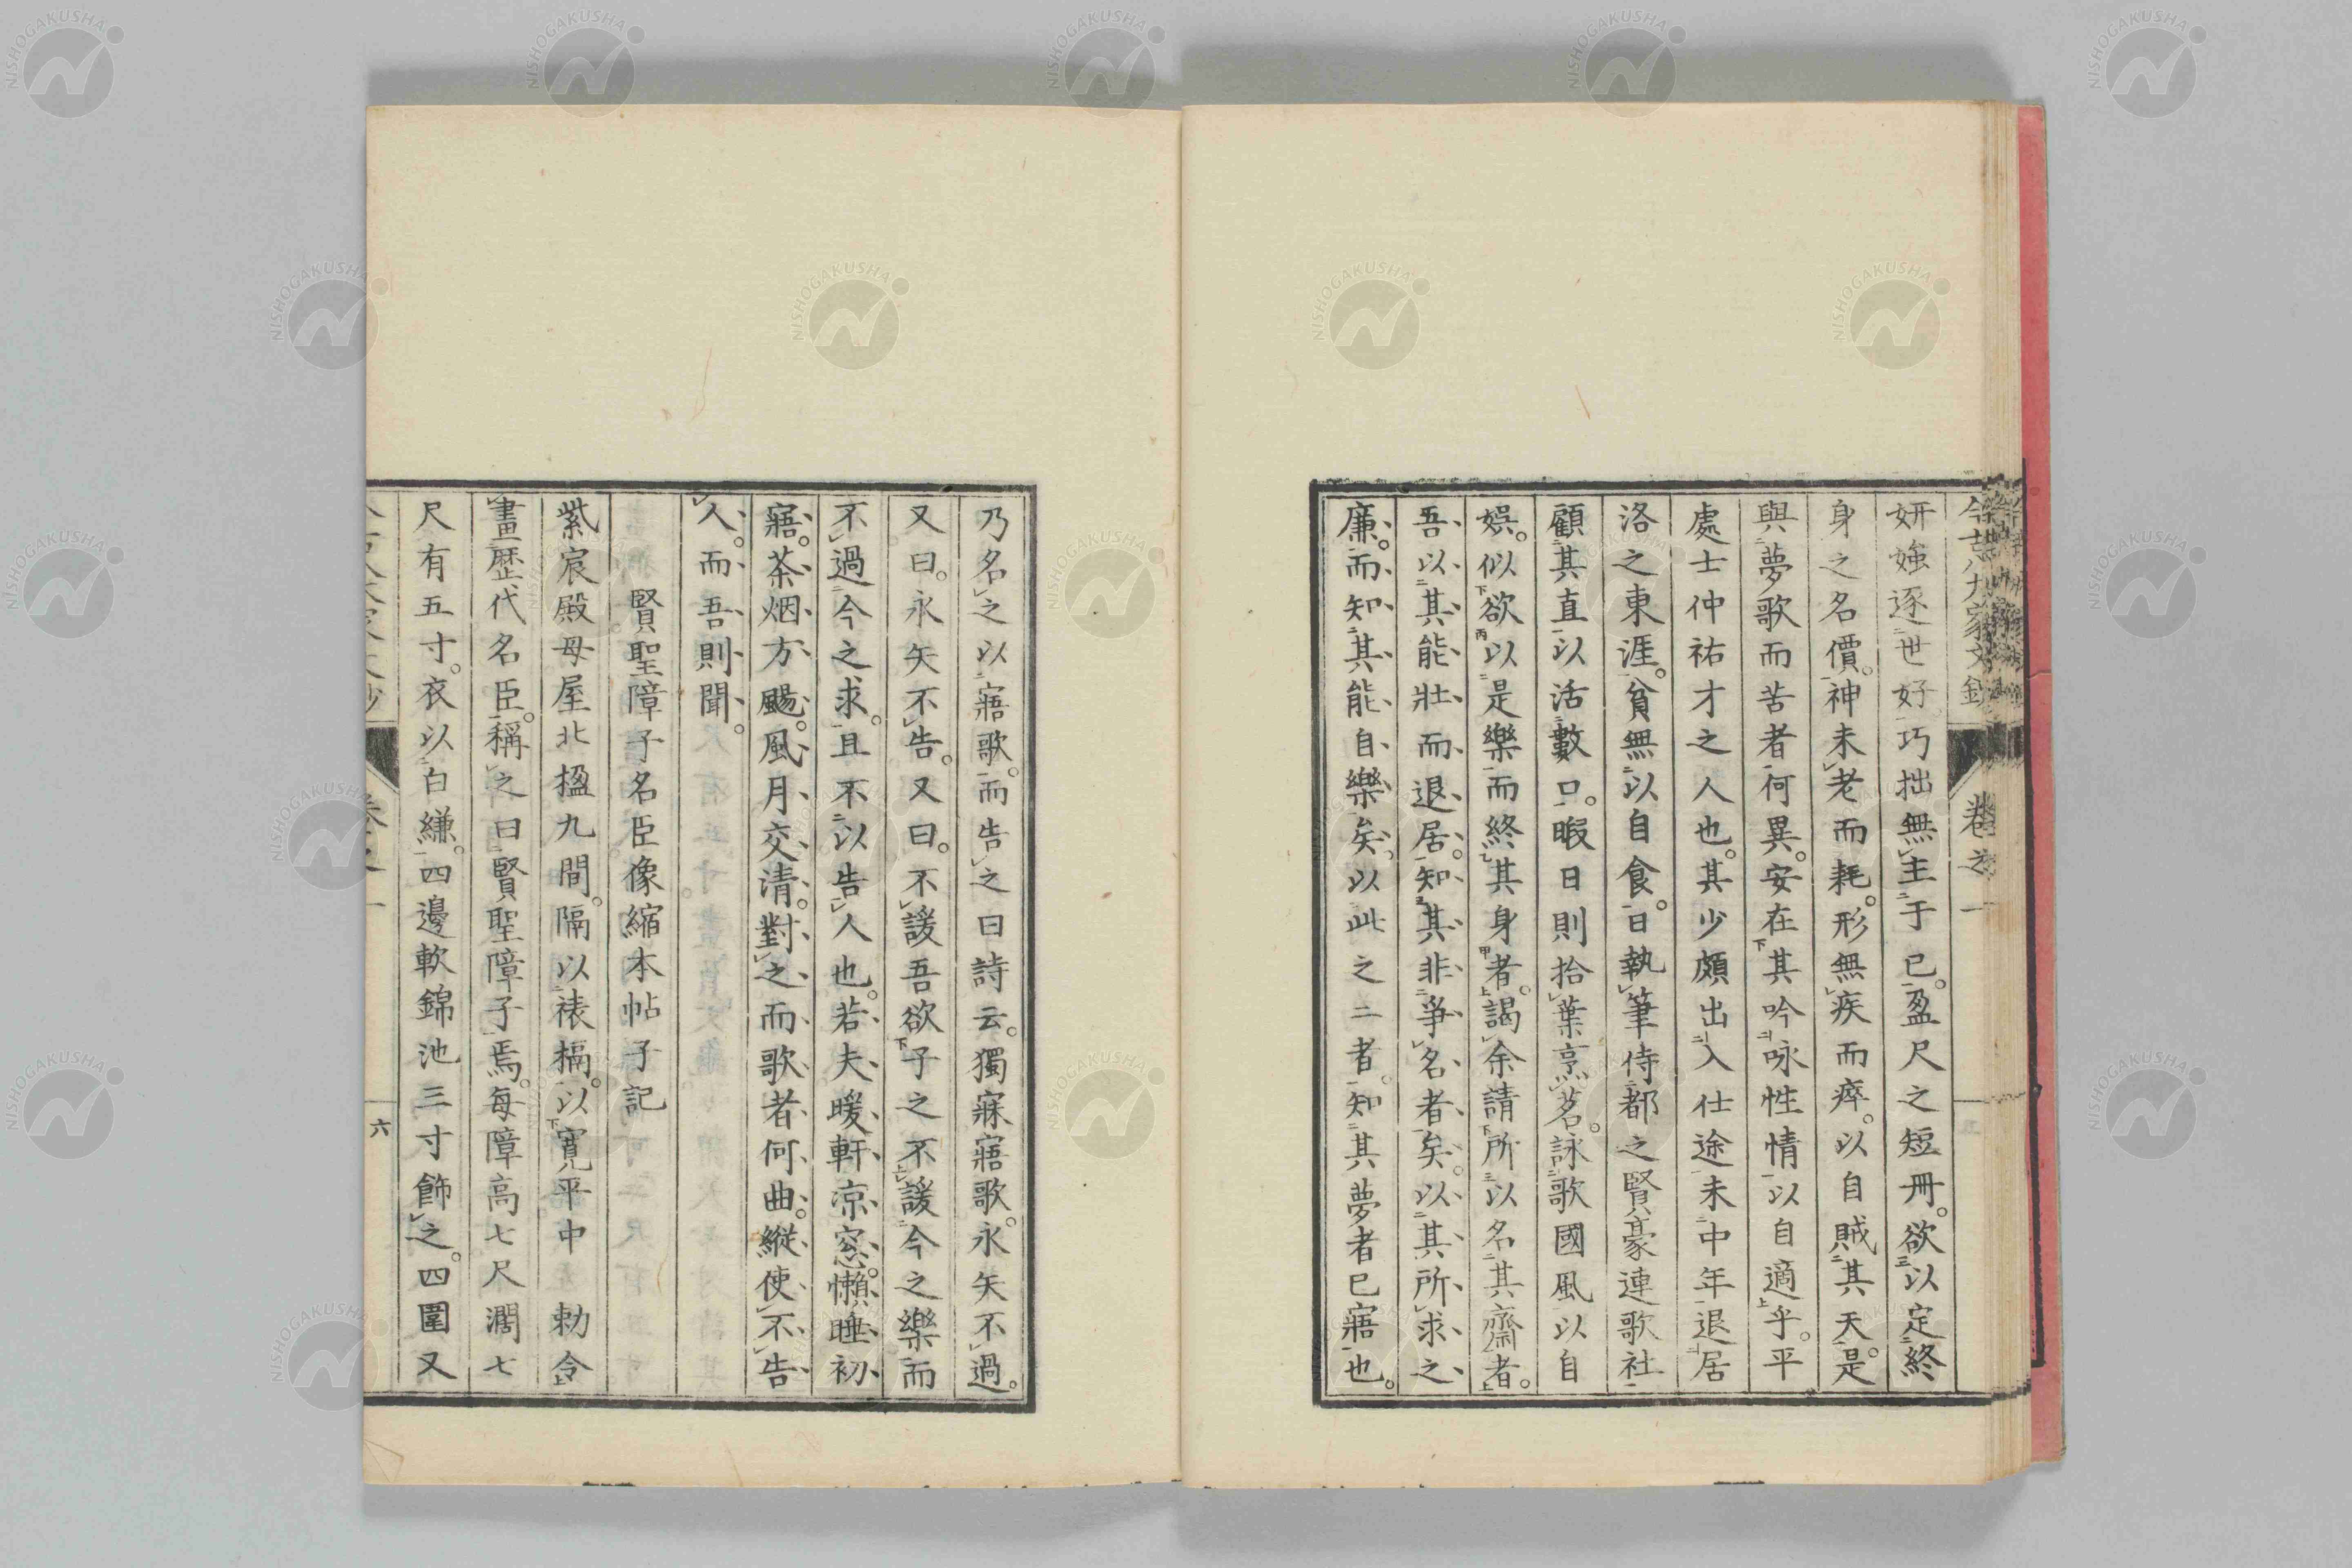 妍媸逐世好巧拙無主于已。盈尺之短冊。欲以定終
身之名價。神未老而耗。形無疾而瘁。以自賊其天。是
與夢歌而苦者何異。安在其吟咏性情以自適乎。平
處士仲祐才之人也。其少頗出入仕途未中年退居
洛之東涯。貧無以自食。日執筆侍都之賢豪連歌社
顧其直以活數口。暇日則拾葉烹茗。詠歌國風以自
娯。似欲以是樂而終其身者。謁余請所以名其齋者。
吾以其能壯而退居。知其非爭名者矣。以其所求之
廉。而知其能自樂矣。以此之二者。知其夢者已寤也。
乃名之以寤歌。而告之曰詩云。獨寐寤歌。永矢不過。
又曰。永矢不告。又曰。不諼吾欲子之不諼今之樂而
不過今之求。且不以告人也。若夫暖軒凉窓。懶睡初
寤。茶烟方颺。風月交清。對之而歌者何曲。縱使不告
人。而吾則聞。
賢聖障子名臣像縮本帖子記
紫宸殿母屋北楹九間。隔以裱槅。以寬平中勅令
畫歴代名臣。稱之曰賢聖障子焉。每障高七尺濶七
尺有五寸。衣以白縑。四邊軟錦池三寸飾之。四圍又
卷之一
六
NISHOGAKUSHA